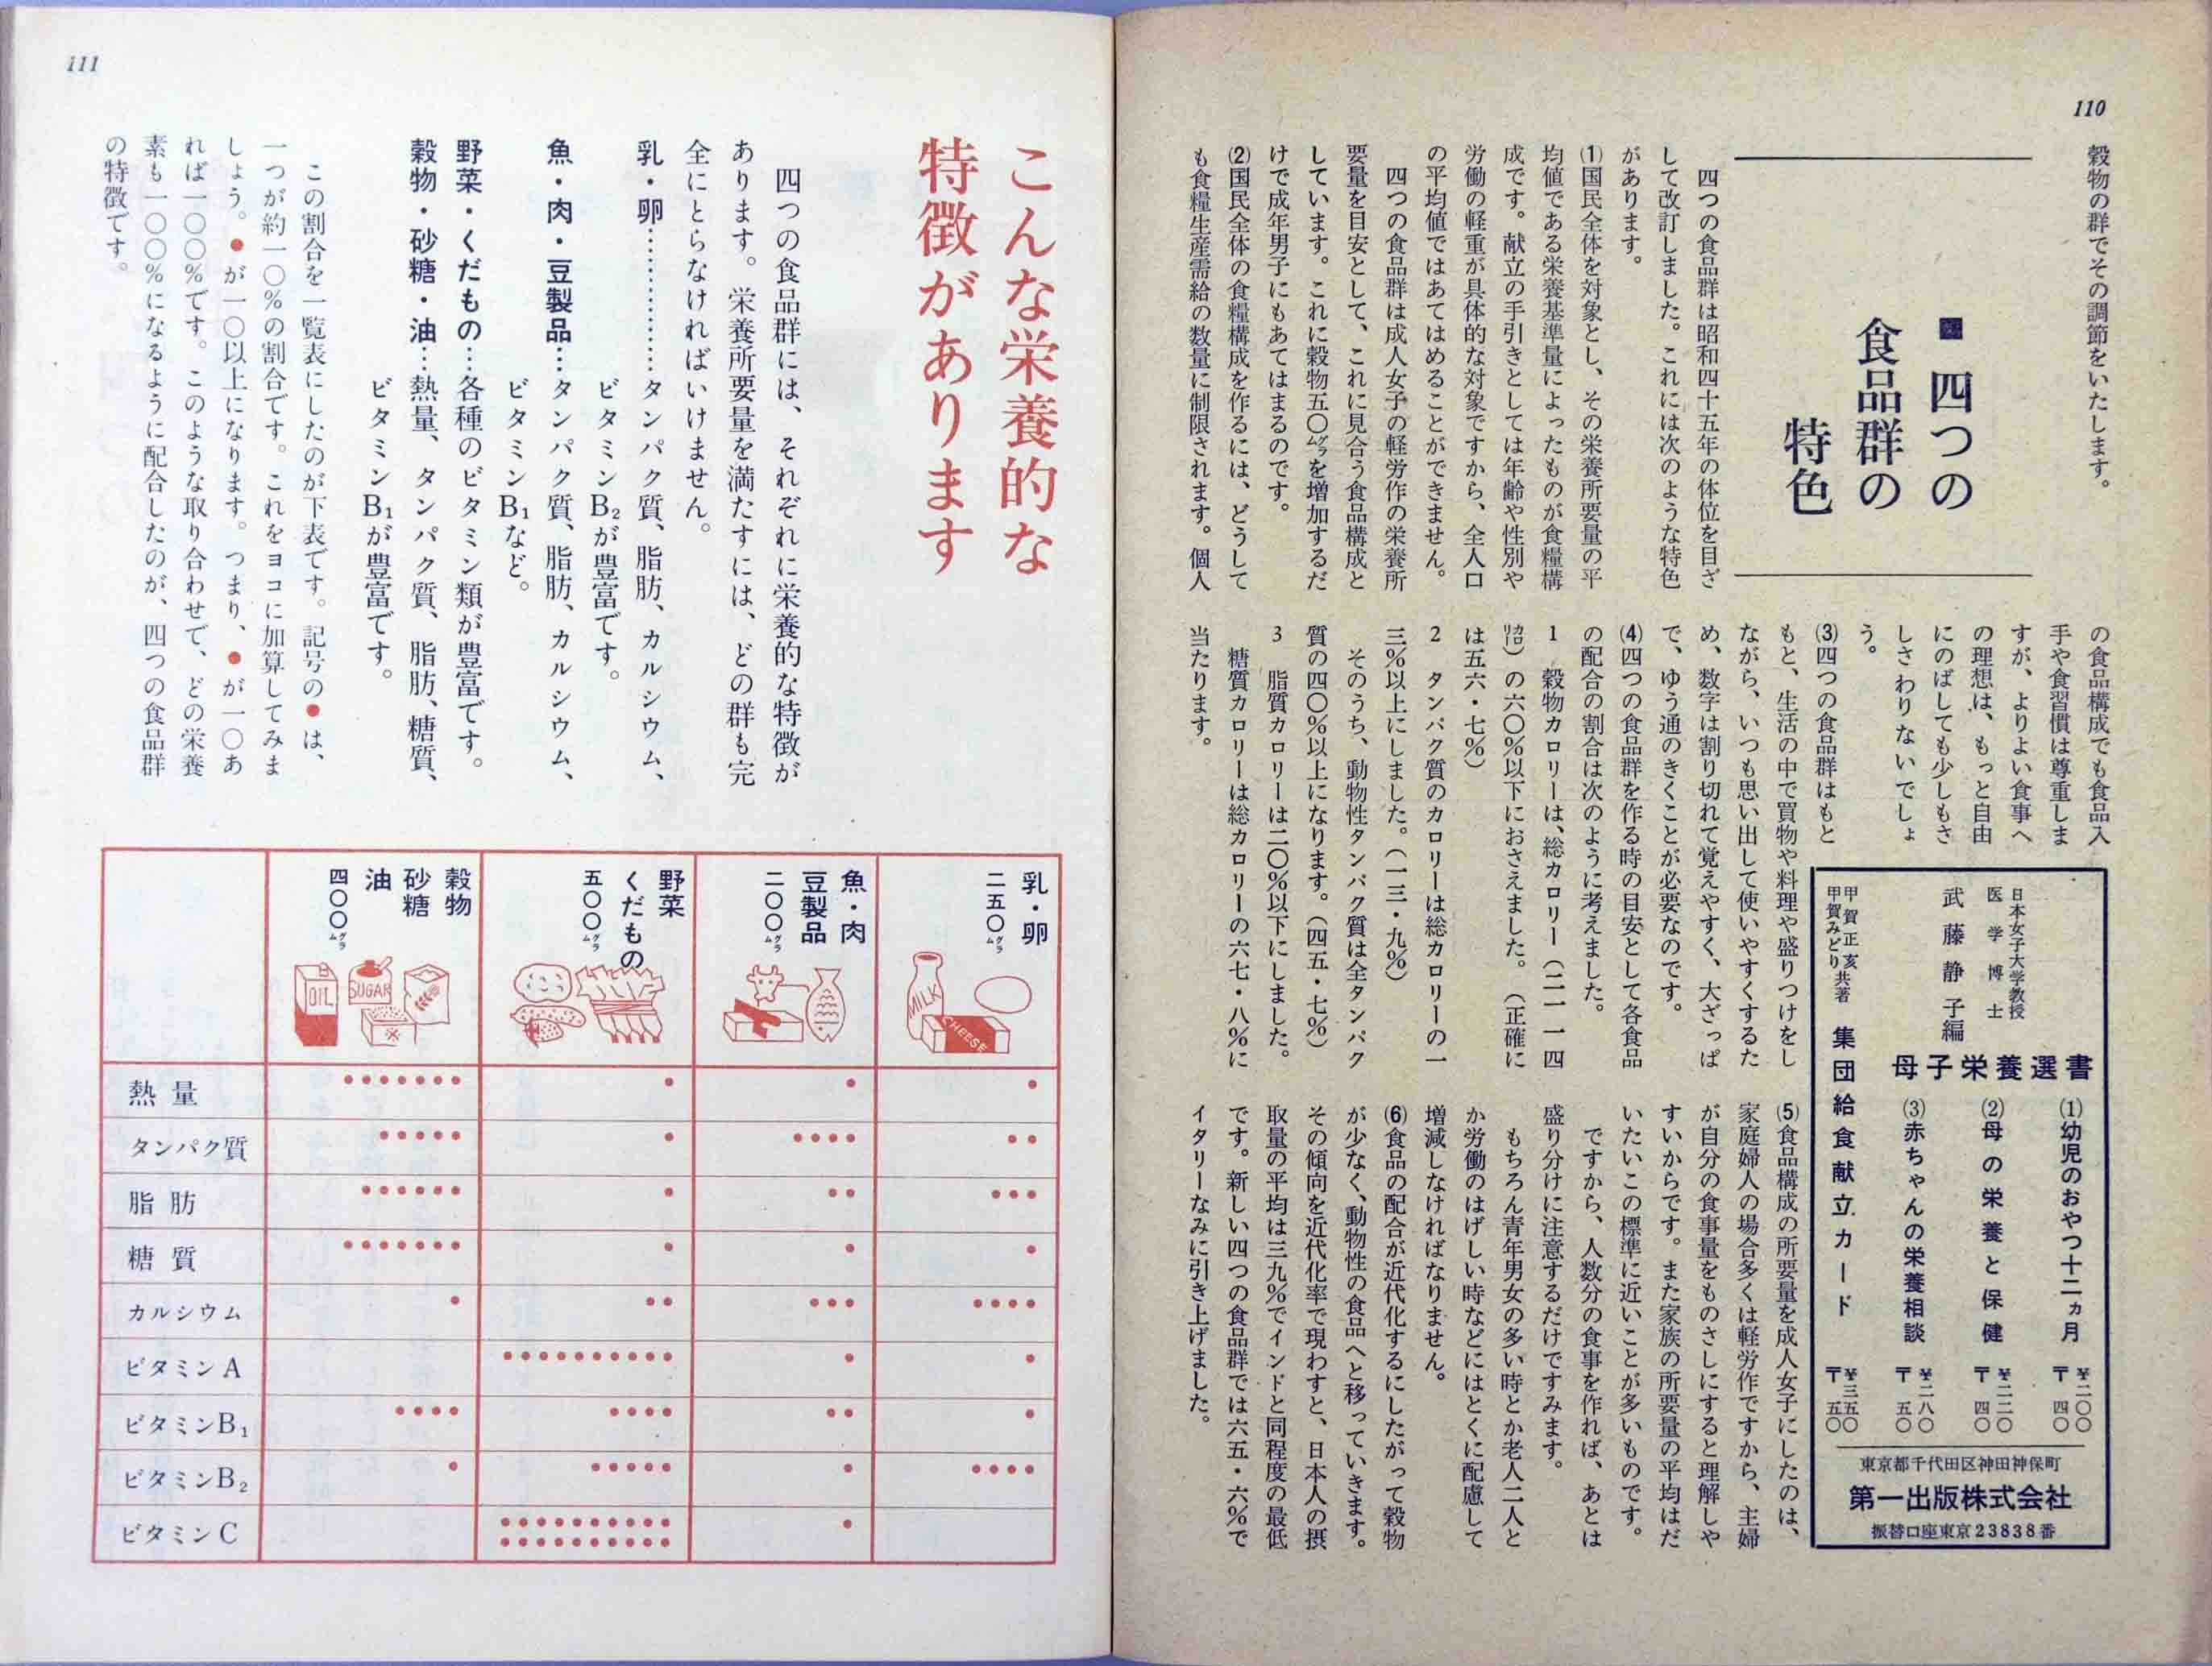 110
穀物の群でその調節をいたします。
■四つの
食品群の
特色
四つの食品群は昭和四十五年の体位を目ざ
して改訂しました。これには次のような特色
があります。
⑴国民全体を対象とし、その栄養所要量の平
均値である栄養基準量によったものが食糧構
成です。献立の手引きとしては年齢や性別や
労働の軽重が具体的な対象ですから、全人口
の平均値ではあてはめることができません。
四つの食品群は成人女子の軽労作の栄養所
要量を目安として、これに見合う食品構成と
しています。これに穀物五〇グラムを増加するだ
けで成年男子にもあてはまるのです。
⑵国民全体の食糧構成を作るには、どうして
も食糧生産需給の数量に制限されます。個人
の食品構成でも食品入
手や食習慣は尊重しま
すが、よりよい食事へ
の理想は、もっと自由
にのばしても少しもさ
しさわりないでしょ
う。
⑶四つの食品群はもと
もと、生活の中で買物や料理や盛りつけをし
ながら、いつも思い出して使いやすくするた
め、数字は割り切れて覚えやすく、大ざっぱ
で、ゆう通のきくことが必要なのです。
⑷四つの食品群を作る時の目安として各食品
の配合の割合は次のように考えました。
1 穀物カロリーは、総カロリー(二一一四
カロリー)の六〇%以下におさえました。(正確に
は五六・七%)
2 タンパク質のカロリーは総カロリーの一
三%以上にしました。(一三・九%)
そのうち、動物性タンパク質は全タンパク
質の四〇%以上になります。(四五・七%)
3 脂質カロリーは二〇%以下にしました。
糖質カロリーは総カロリーの六七・八%に
当たります。
⑸食品構成の所要量を成人女子にしたのは、
家庭婦人の場合多くは軽労作ですから、主婦
が自分の食事量をものさしにすると理解しや
すいからです。また家族の所要量の平均はだ
いたいこの標準に近いことが多いものです。
ですから、人数分の食事を作れば、あとは
盛り分けに注意するだけですみます。
もちろん青年男女の多い時とか老人二人と
か労働のはげしい時などにはとくに配慮して
増減しなければなりません。
⑹食品の配合が近代化するにしたがって穀物
が少なく、動物性の食品へと移っていきます。
その傾向を近代化率で現わすと、日本人の摂
取量の平均は三九%でインドと同程度の最低
です。新しい四つの食品群では六五・六%で
イタリーなみに引き上げました。
日本女子大学教授
医学博士
武藤静子編
母子栄養選書
⑴幼児のおやつ十二ヵ月 ¥二〇〇 〒四〇
⑵母の栄養と保健 ¥二二〇 〒四〇
⑶赤ちゃんの栄養相談 ¥二八〇 〒五〇
甲賀正亥
甲賀みどり共著
集団給食献立カード ¥三五〇 〒五〇
東京都千代田区神田神保町
第一出版株式会社
振替口座東京23838番
111
こんな栄養的な
特徴があります
四つの食品群には、それぞれに栄養的な特徴が
あります。栄養所要量を満たすには、どの群も完
全にとらなければいけません。
乳・卵……………タンパク質、脂肪、カルシウム、
ビタミンB₂が豊富です。
魚・肉・豆製品…タンパク質、脂肪、カルシウム、
ビタミンB₁など。
野菜・くだもの…各種のビタミン類が豊富です。
穀物・砂糖・油…熱量、タンパク質、脂肪、糖質、
ビタミンB₁が豊富です。
この割合を一覧表にしたのが下表です。記号の●は、
一つが約一〇%の割合です。これをヨコに加算してみま
しょう。●が一〇以上になります。つまり、●が一〇あ
れば一〇〇%です。このような取り合わせで、どの栄養
素も一〇〇%になるように配合したのが、四つの食品群
の特徴です。
乳・卵
二五〇グラム
MILK
CHEESE
魚・肉
豆製品
二〇〇グラム
野菜
くだもの
五〇〇グラム
穀物
砂糖
油
四〇〇グラム
OIL
SUGAR
熱量 ●●●●●●● ● ● ●
タンパク質 ●●●●● ● ●●●● ●●
脂肪 ●●●●●● ● ●● ●●●
糖質 ●●●●●●● ● ● ●
カルシウム ● ●● ●●● ●●●●
ビタミンA ●●●●●●●●●● ● ●
ビタミンB₁ ●●●● ●●●● ●● ●
ビタミンB₂ ● ●●●●● ● ●●●●
ビタミンC ●●●●●●●●●● ●●●●●●●●●● ●